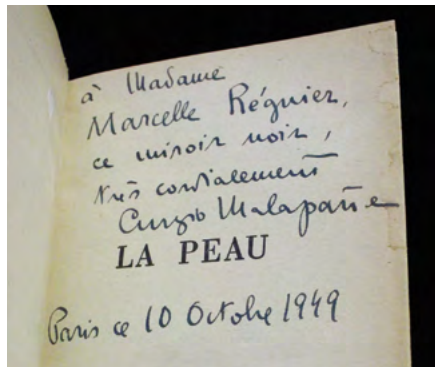 à Madame
Marcelle Régnier,
ce miroir noir,
très cordialement
Curzio Malaparte
LA PEAU
Paris ce 10 Octobre 1949